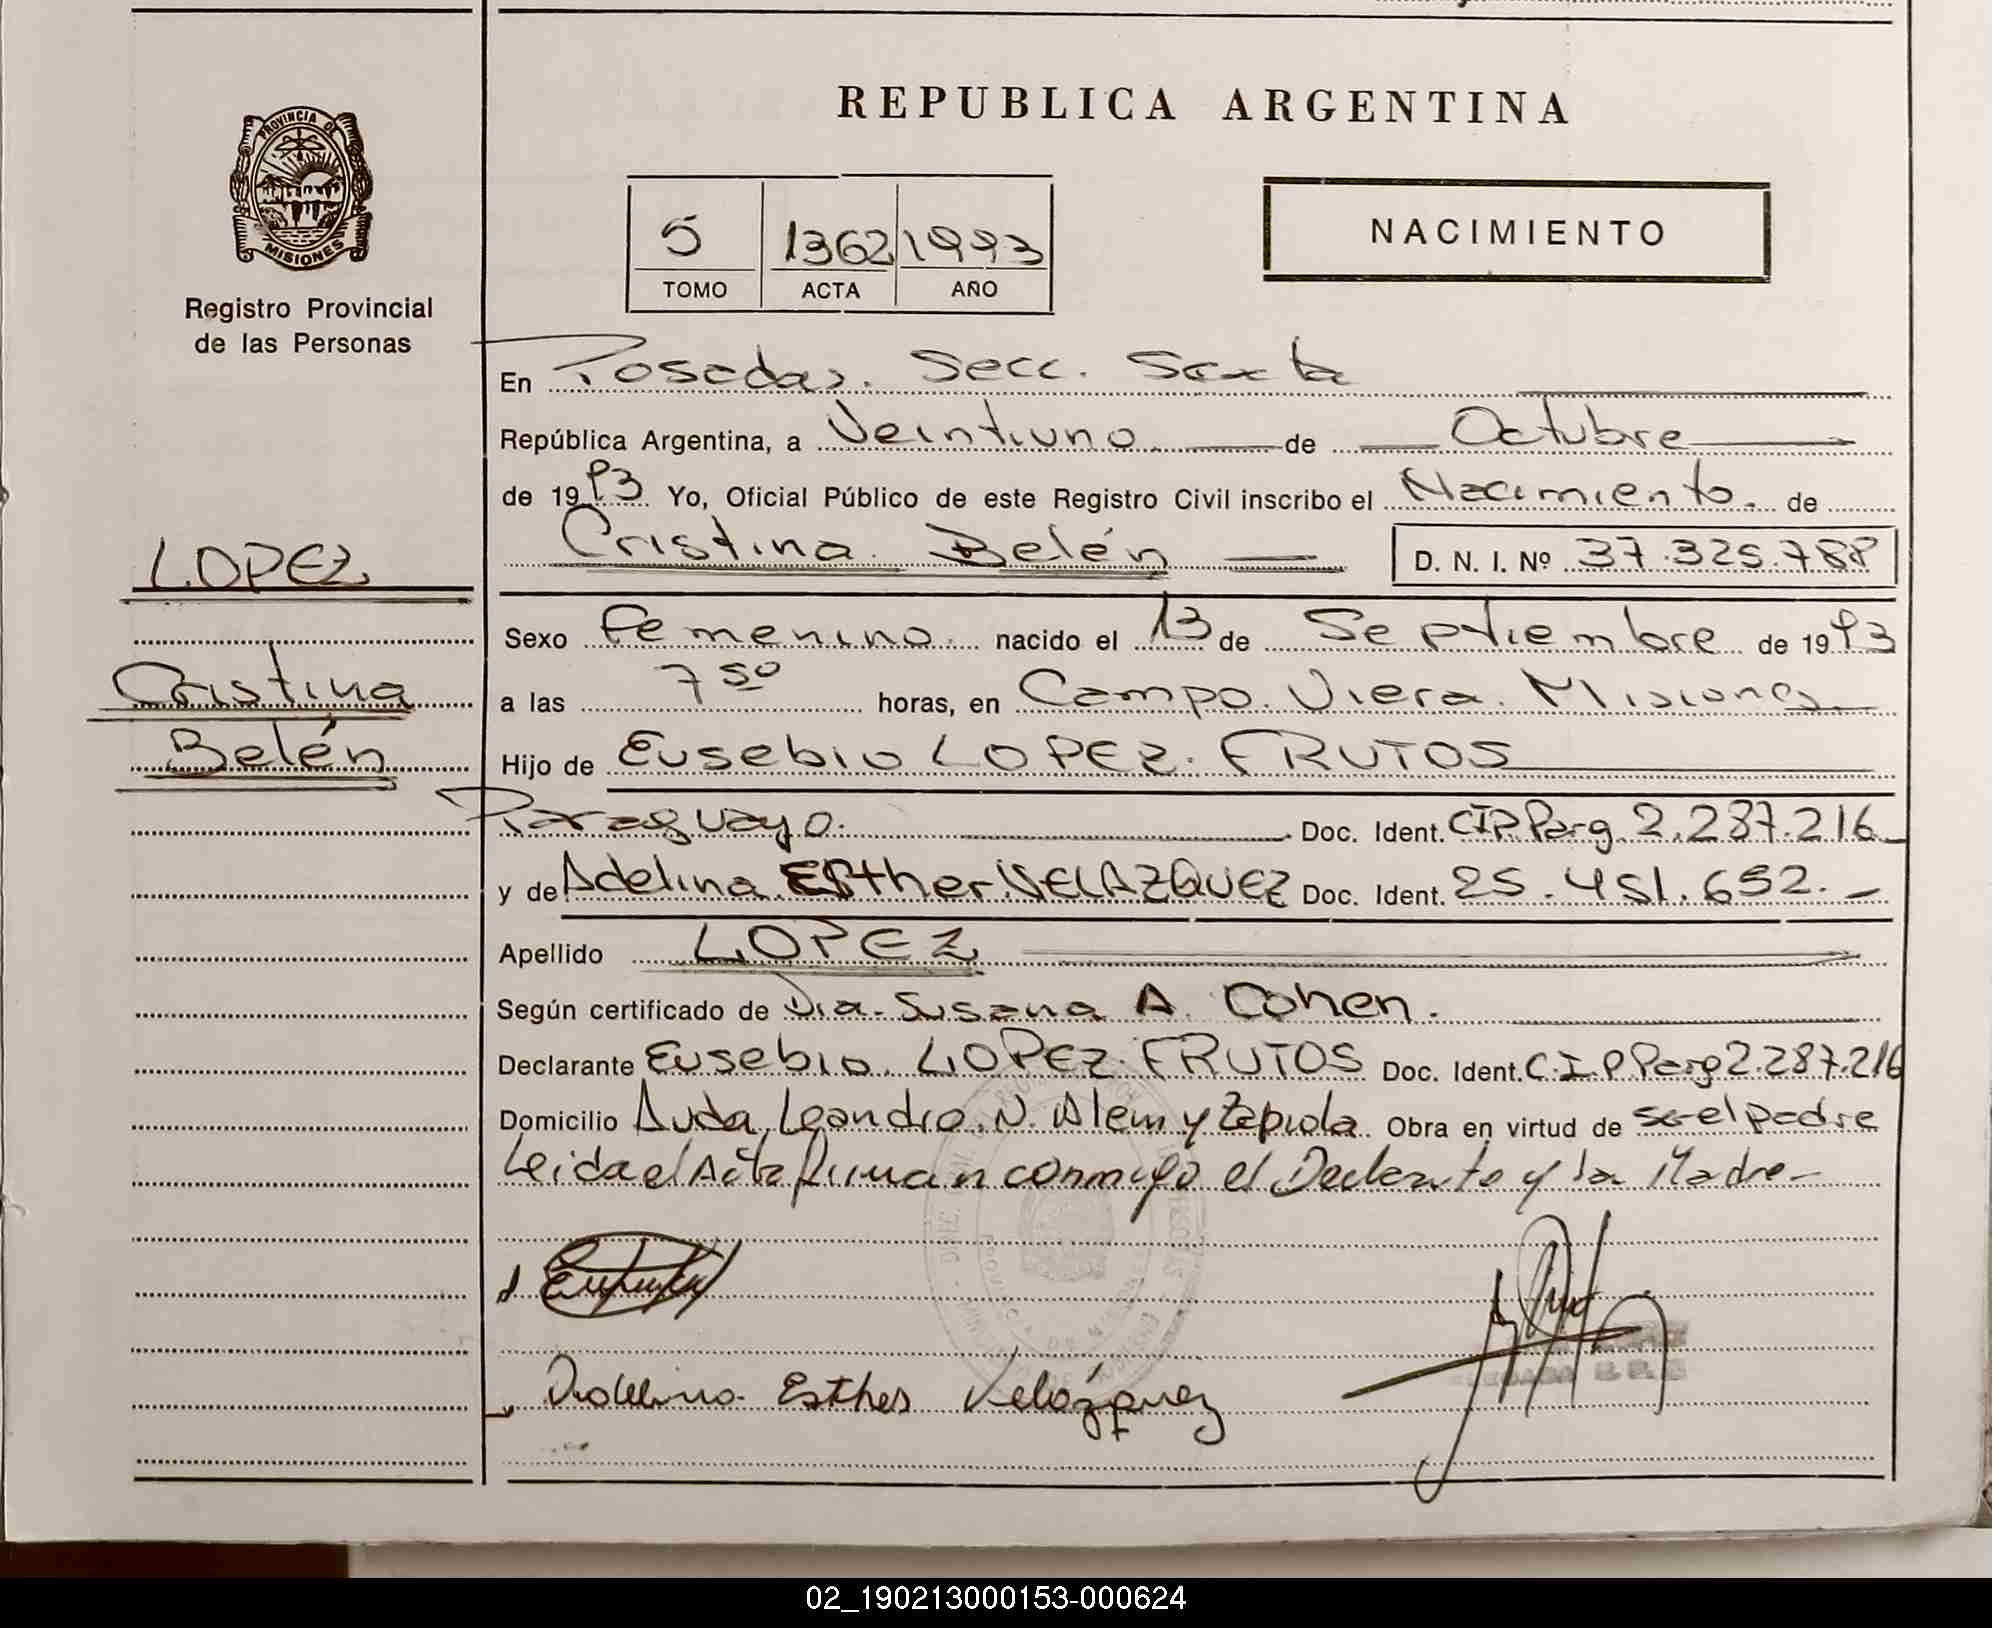 REPUBLICA ARGENTINA
PROVINCIA DE
MISIONES
Registro Provincial
de las Personas
5 1362 1993
TOMO ACTA AÑO
NACIMIENTO
En Posadas. Secc. Sexta
República Argentina, a Veintiuno de Octubre
de 1993 Yo, Oficial Público de este Registro Civil inscribo el Nacimiento. de
Cristina Belén D. N. I. Nº 37.325.788
LOPEZ
Cristina
Belén
Sexo Femenino. nacido el 13 de Septiembre de 1993
a las 7 50 horas, en Campo Viera. Misiones
Hijo de Eusebio LOPEZ. FRUTOS
Paraguayo. Doc. Ident. CIP. Parg. 2.287.216
y de Adelina Esther VELAZQUEZ Doc. Ident. 25.451.652.
Apellido LOPEZ
Según certificado de Dra. Susana A. Cohen.
Declarante Eusebio LOPEZ FRUTOS Doc. Ident. C.I.P Parg 2.287.216
Domicilio Avda. Leandro. N. Alem y Zapiola Obra en virtud de ser el padre
Leida el Acta firman conmigo el Declarante y la Madre-
Adelina Esther Velázquez
02_190213000153-000624